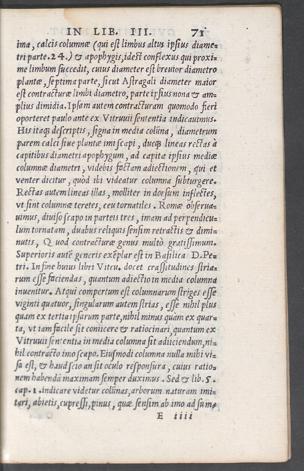 IN LIB. III. 71
ima, calcis columnæ (qui est limbus altus ipsius diame-
tri parte. 24.) & apophygis, id est conflexus qui proxi-
me limbum succedit, cuius diameter est breuior diametro
plantæ, septima parte, sicut Astragali diameter maior
est contracturæ limbi diametro, parte ipsius nona & am-
plius dimidia. Ipsam autem contracturam quomodo fieri
oporteret paulo ante ex Vitruuij sententia indicauimus.
His itaque descriptis, signa in media colūna, diametrum
parem calci siue plantæ imi scapi, ducque lineas rectas à
capitibus diametri apophygum, ad capita ipsius mediæ
columnæ diametri, videbis factam adiectionem, qui et
venter dicitur, quòd ibi videatur columna subturgere.
Rectas autem lineas illas, molliter in dorsum inflectes,
vt sint columnæ teretes, ceu tornatiles. Romæ obserua-
uimus, diuiso scapo in partes tres, imam ad perpendicu-
lum tornatam, duabus reliquis sensim retractis & dimi-
nutis, Quod contracturæ genus multò gratissimum.
Superioris autē generis exēplar est in Basilica D. Pe-
tri. In fine huius libri Vitru. docet crassitudines stria-
rum esse faciendas, quantum adiectio in media columna
inuenitur. Atqui compertum est columnarum striges esse
viginti quatuor, singularum autem strias, esse nihil plus
quam ex tertia ipsarum parte, nihil minus quàm ex quar-
ta, vt iam facile sit conijcere & ratiocinari, quantum ex
Vitruuij sententia in media columna sit adijciendum, ni-
hil contracto imo scapo. Eiusmodi columna nulla mihi vi-
sa est, & haud scio an sit oculo responsura, cuius ratio-
nem habendā maximam semper duximus. Sed & lib. 5.
cap. 1. indicare videtur colūnas, arborum naturam imi-
tari, abietis, cupressi, pinus, quæ sensim ab imo ad sum-
E iiij